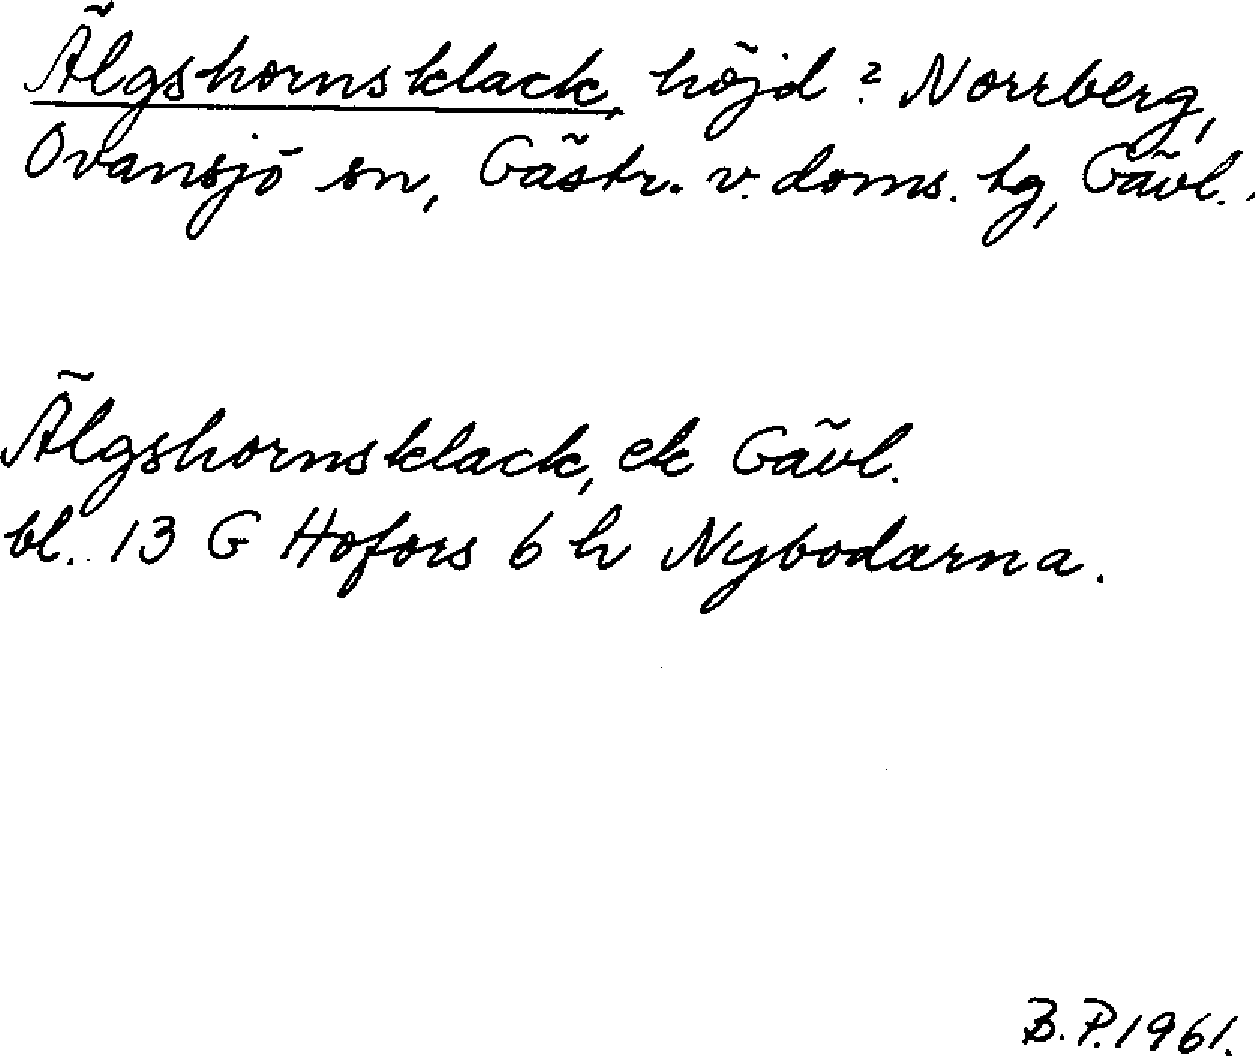 Älgshornsklack, höjd? Norrberg,
Ovansjö sn, Gästr. v. doms. tg, Gävl.
Älgshornsklack, ek Gävl.
bl. 13 G Hofors 6 h Nybodarna.
B.P. 1961.